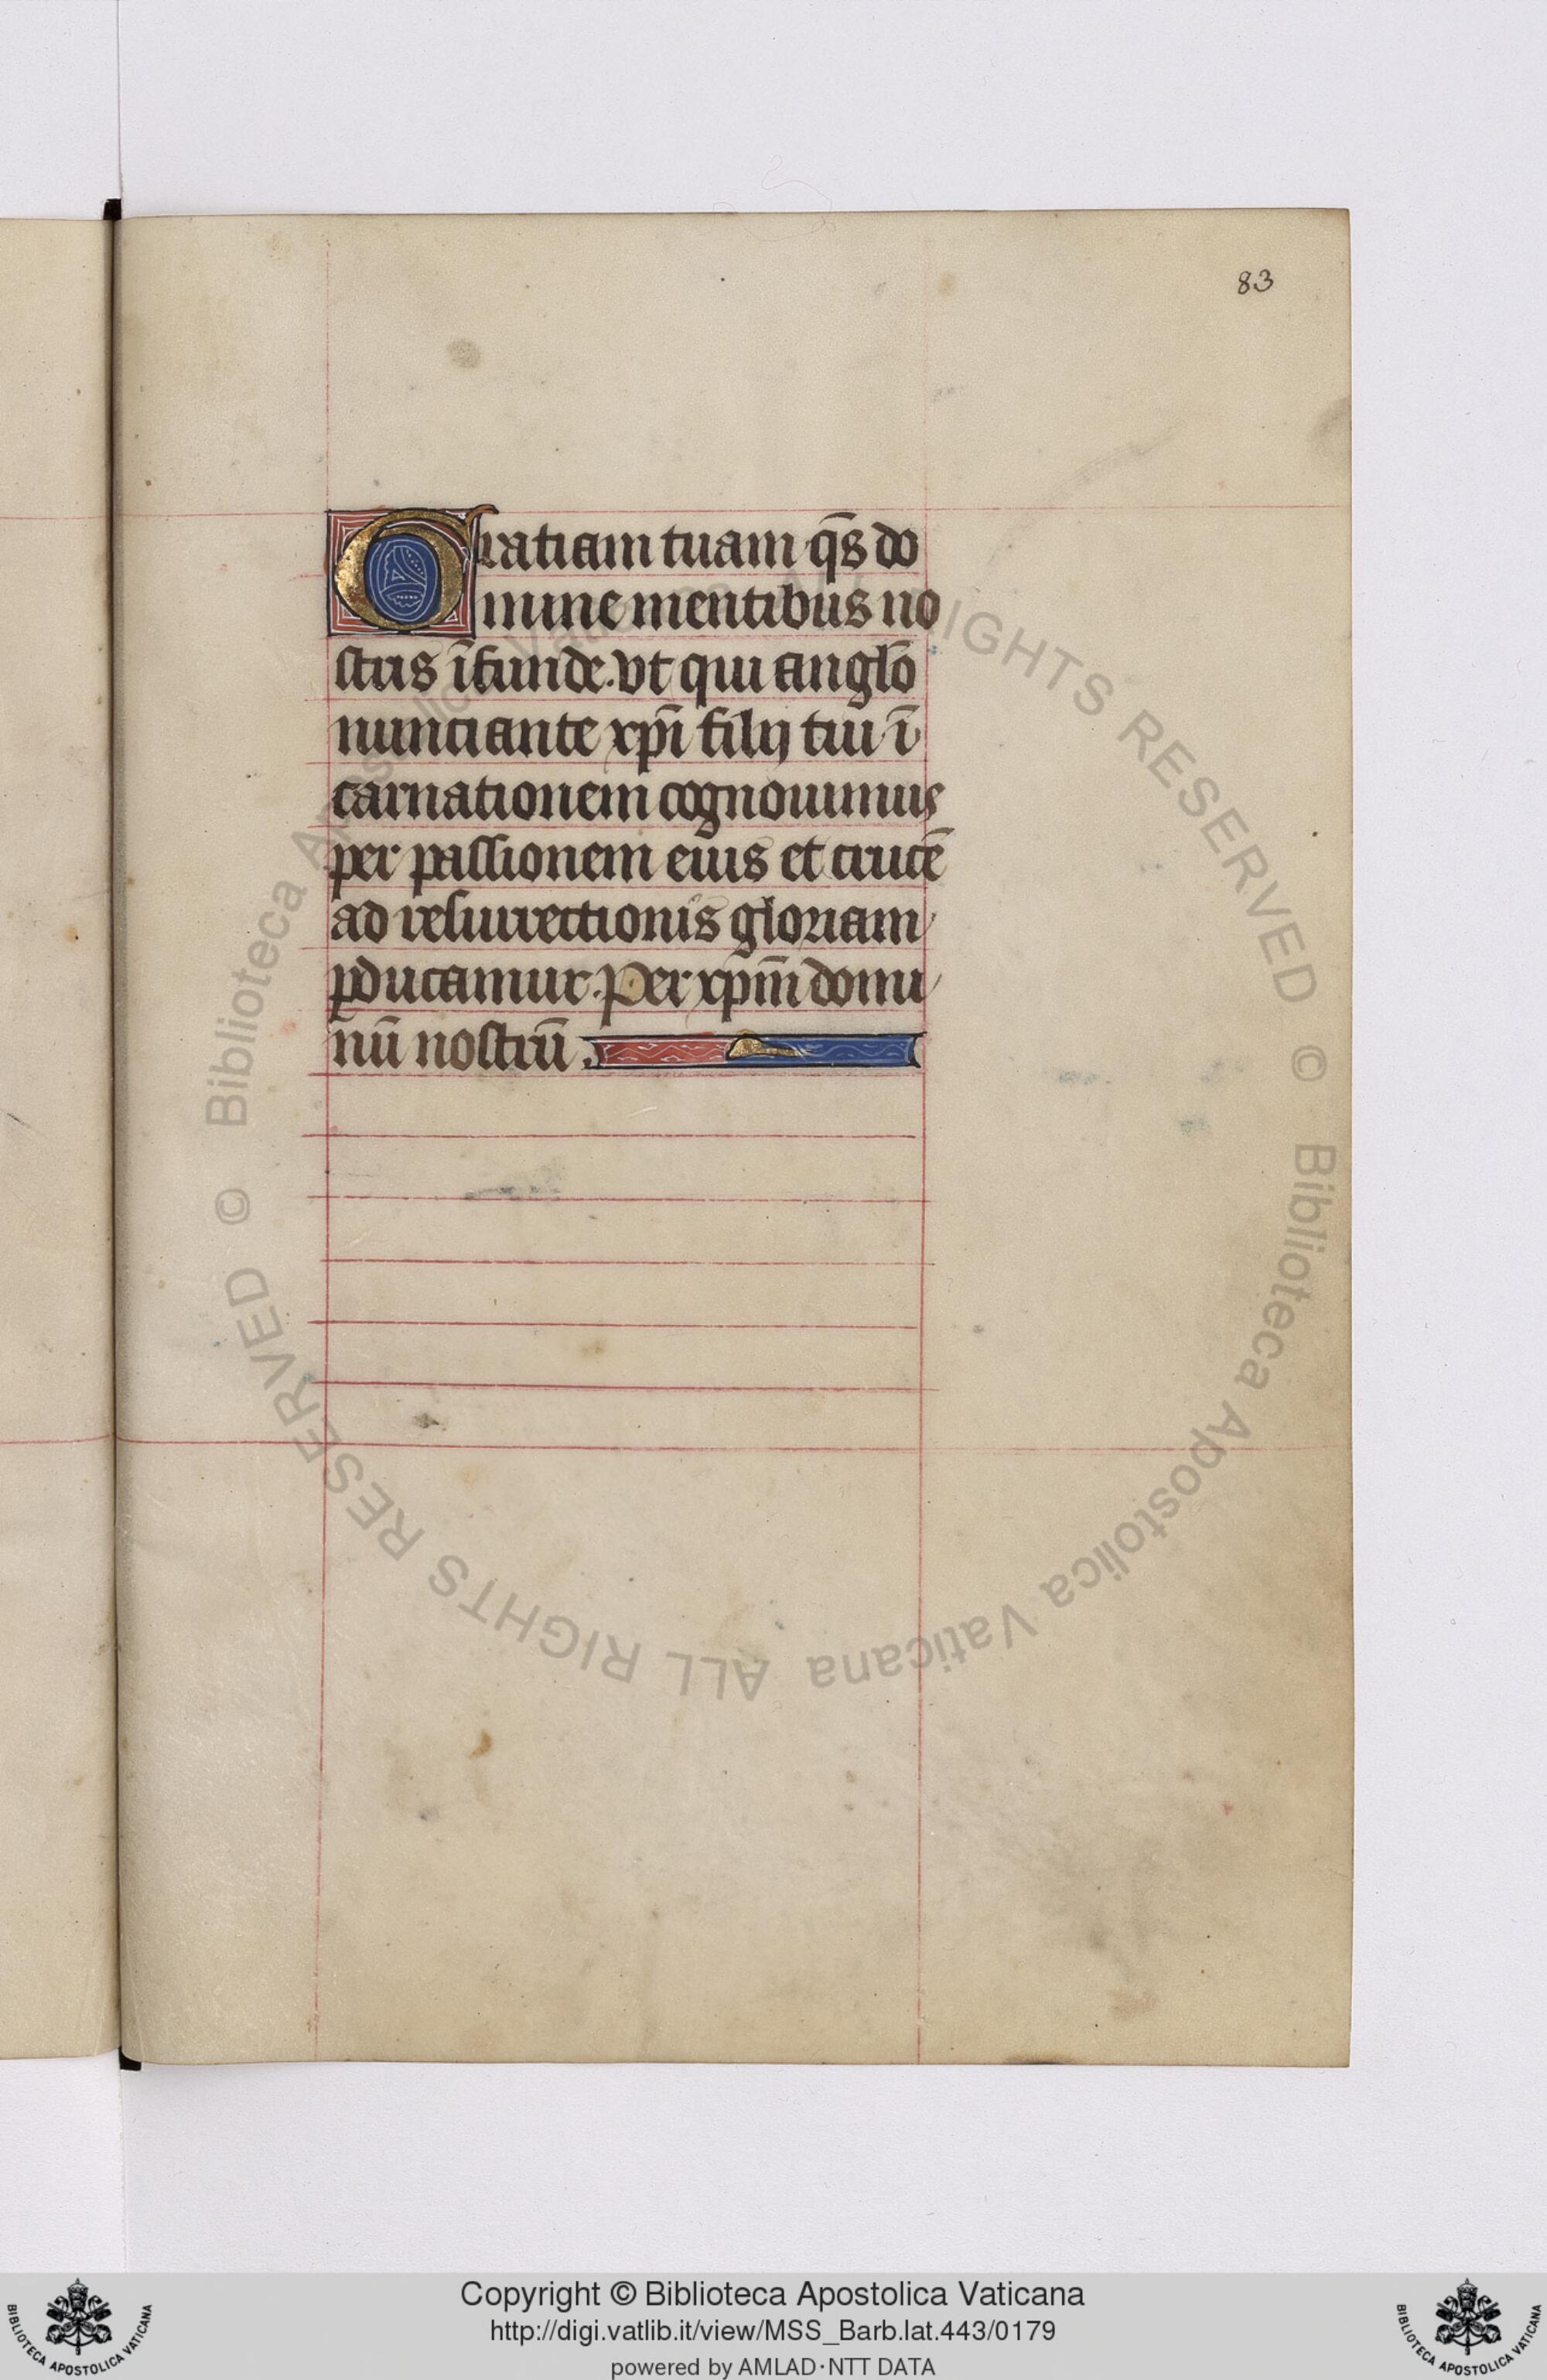 83
Gratiam tuam q̄s do
mine mentibus no
stris īfunde. vt qui anglo᷑
nunciante xp̄i filij tui ī
carnationem cognouimus
per passionem eius et crucē
ad resurrectionis gloriam
ꝑducamur. Per xp̄m domi
nū nostrū.
© Biblioteca Apostolica Vaticana ALL RIGHTS RESERVED © Biblioteca Apostolica Vaticana ALL RIGHTS RESERVED
Copyright © Biblioteca Apostolica Vaticana
http://digi.vatlib.it/view/MSS_Barb.lat.443/0179
powered by AMLAD·NTT DATA
BIBLIOTECA APOSTOLICA VATICANA
BIBLIOTECA APOSTOLICA VATICANA